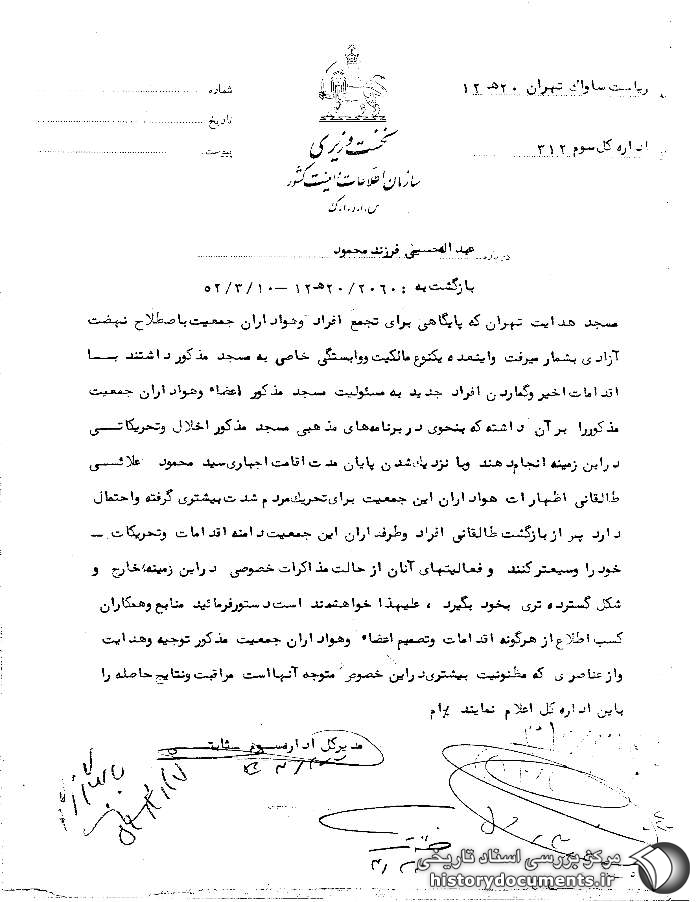 ریاست ساواك تهران ۲۰هـ ۱۲
شماره
اداره کل سوم ۳۱۲
تاریخ
پیوست
نخست وزیری
سازمان اطلاعات و امنیت کشور
س.ا.و.ا.ک
درباره عبدالحسینی فرزند محمود
بازگشت به : ۲۰/۲۰۶۰هـ۱۲ — ۵۲/۳/۱۰
مسجد هدایت تهران که پایگاهی برای تجمع افراد وهواداران جمعیت باصطلاح نهضت
آزادی بشمار میرفت واینعده یکنوع مالکیت ووابستگی خاصی به مسجد مذکور داشتند بــا
اقدامات اخیر وگماردن افراد جدید به مسئولیت مسجد مذکور اعضاء وهواداران جمعیت
مذکوررا برآن داشته که بنحوی دربرنامه‌های مذهبی مسجد مذکور اخلال وتحریکاتــی
دراین زمینه انجام دهند وبا نزدیك شدن پایان مدت اقامت اجباری سید محمود علائــی
طالقانی اظهارات هواداران این جمعیت برای تحریك مردم شدت بیشتری گرفته واحتمال
دارد پس از بازگشت طالقانی افراد وطرفداران این جمعیت دامنه اقدامات وتحریکات ــ
خود را وسیعترکنند و فعالیتهای آنان از حالت مذاکرات خصوصی دراین زمینه خارج و
شکل گسترده تری بخود بگیرد ، علیهذا خواهشمند است دستورفرمائید منابع وهمکاران
کسب اطلاع از هرگونه اقدامات وتصمیم اعضاء وهواداران جمعیت مذکور توجیه وهدایت
واز عناصری که مظنونیت بیشتری دراین خصوص متوجه آنها است مراقبت ونتایج حاصله را
باین اداره کل اعلام نمایند
مدیرکل اداره سوم ثابتی
مرکز بررسی اسناد تاریخی
historydocuments.ir